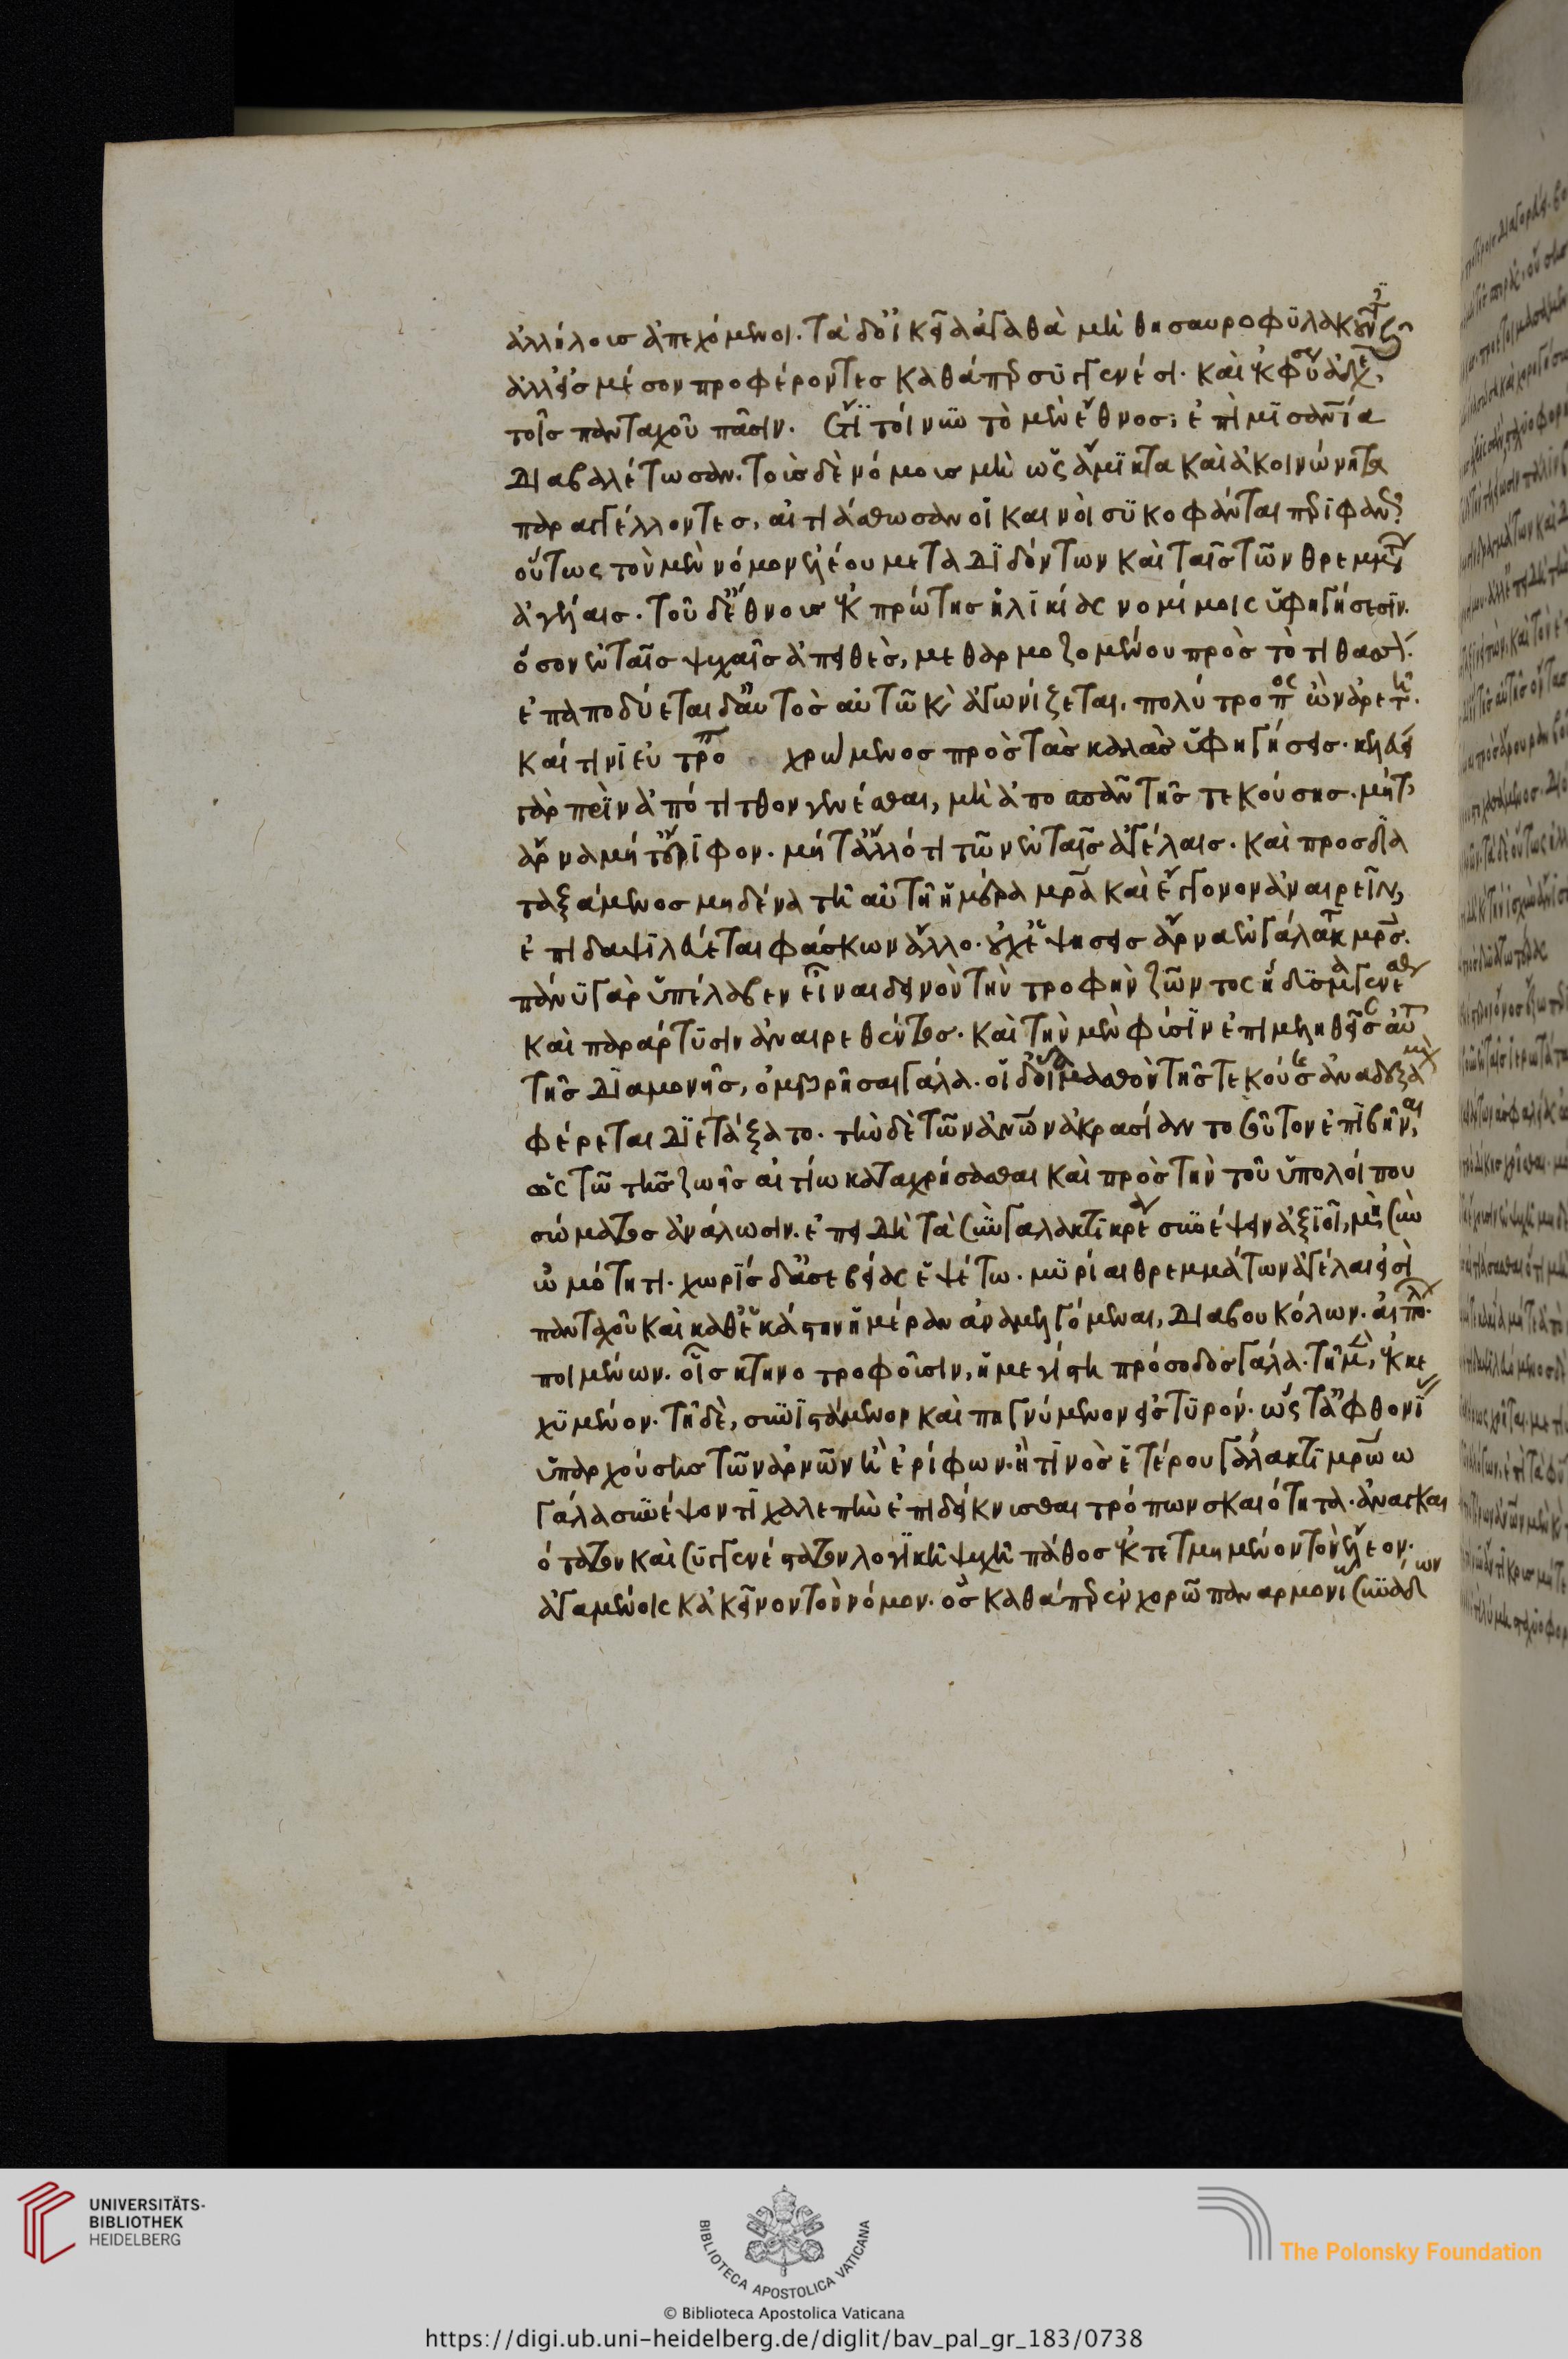 ἀλλήλοις ἀπεχόμενοι. τὰ δ' οἰκεῖα ἀγαθὰ μὴ θησαυροφυλακοῦντες
ἀλλ' εἰς μέσον προφέροντες καθάπερ συγγενέσι. καὶ ἐκ φύσεως ἀδελφ
τοῖς πανταχοῦ πᾶσιν. ἔτι τοίνυν τὸ μὲν ἔθνος ἐπὶ μισανία
διαβαλέτωσαν. τοῖς δὲ νόμοις μὴ ὡς ἄμικτα καὶ ἀκοινώνητα
παραγγέλλοντες, αἰτιάσθωσαν οἱ καινοὶ συκοφάνται περιφαν
οὕτως τὸν μὲν νόμον ἐλέου μεταδιδόντων καὶ ταῖς τῶν θρεμμάτ
ἀγέλαις. τοῦ δ' ἔθνους ἐκ πρώτης ἡλικίας νομίμοις ὑφηγήσεσιν.
ὅσον ἐν ταῖς ψυχαῖς ἀπειθὲς, μεθαρμοζομένου πρὸς τὸ τιθασὸν.
ἐπαποδύεται δ' αὐτὸς αὑτῷ καὶ ἀγωνίζεται. πολύτροπος ὢν ἀρετὴν.
καί τινι εὐτροπ χρώμενος πρὸς τὰς καλὰς ὑφηγήσεις. κελεύει
γὰρ πεῖν ἀπότιτθον γενέσθαι, μὴ ἀποσπᾶν τῆς τεκούσης. μήτ'
ἄρνα μήτ' ἔριφον. μήτ' ἄλλό τι τῶν ἐν ταῖς ἀγέλαις. καὶ προσδια
ταξάμενος μηδένα τῇ αὐτῇ ἡμέρα μρα καὶ ἔγγονον ἀναιρεῖν,
ἐπιδαψιλεύεται φάσκων ἄλλο. οὐχ ἑψήσεις ἄρνα ἐν γάλακτι μρς.
πάνυ γὰρ ὑπέλαβεν εἶναι δεινὸν τὴν τροφὴν ζῶντος ἥδυσμα γενέσθαι
καὶ παράρτυσιν ἀναιρεθέντος. καὶ τὴν μὲν φύσιν ἐπιμεληθεῖσ αὐτ
τῆς διαμονῆς, ὀμβρῆσαι γάλα. τῆς τεκούσης
φέρεται διετάξατο. τὴν δὲ τῶν ἀνων ἀκρασίαν τοσοῦτον ἐπιβῆναι,
ὡς τῷ τῆς ζωῆς αἰτίω καταχρήσασθαι καὶ πρὸς τὴν τοῦ ὑπολοίπου
σώματος ἀνάλωσιν. ἐπεὶ δὴ τὰ σὺν γάλακτι κρέα συνέψειν ἀξιοῖ, μὴ σὺν
ὠμότητι. χωρίς δ' ἀσεβείας ἑψέτω. μυρίαι θρεμμάτων ἀγέλαι εἰσὶ
πανταχοῦ καὶ καθ' ἑκάστην ἡμέραν ἀναμελγόμεναι, διὰ βουκόλων. αἰπόλ.
ποιμένων. οἷς κτηνοτροφοῦσιν, ἡ μεγίστη πρόσοδος γάλα. τῇ μὲν, ἐκκε
χυμένον. τῇ δὲ, συνιστάμενον καὶ πηγνύμενον εἰς τυρόν. ὥστ' ἀφθονί
ὑπαρχούσης τῶν ἀρνῶν ἢ ἐρίφων. ἤ τινος ἑτέρου γάλακτι μρώω
γάλα συνέψοντι χαλεπὴν ἐπιδείκνυσθαι τρόπων σκαιότητα. ἀναγκαι
ότατον καὶ συγγενέστατον λογικῇ ψυχῇ πάθος ἐκτετμημένον τὸν ἔλεον.
ἀγαμένοις κἀκεῖνον τὸν νόμον. ὃς καθάπερ ἐν χορῷ παναρμονίω συνάδ
UNIVERSITÄTS-
BIBLIOTHEK
HEIDELBERG
BIBLIOTECA APOSTOLICA VATICANA
The Polonsky Foundation
© Biblioteca Apostolica Vaticana
https://digi.ub.uni-heidelberg.de/diglit/bav_pal_gr_183/0738